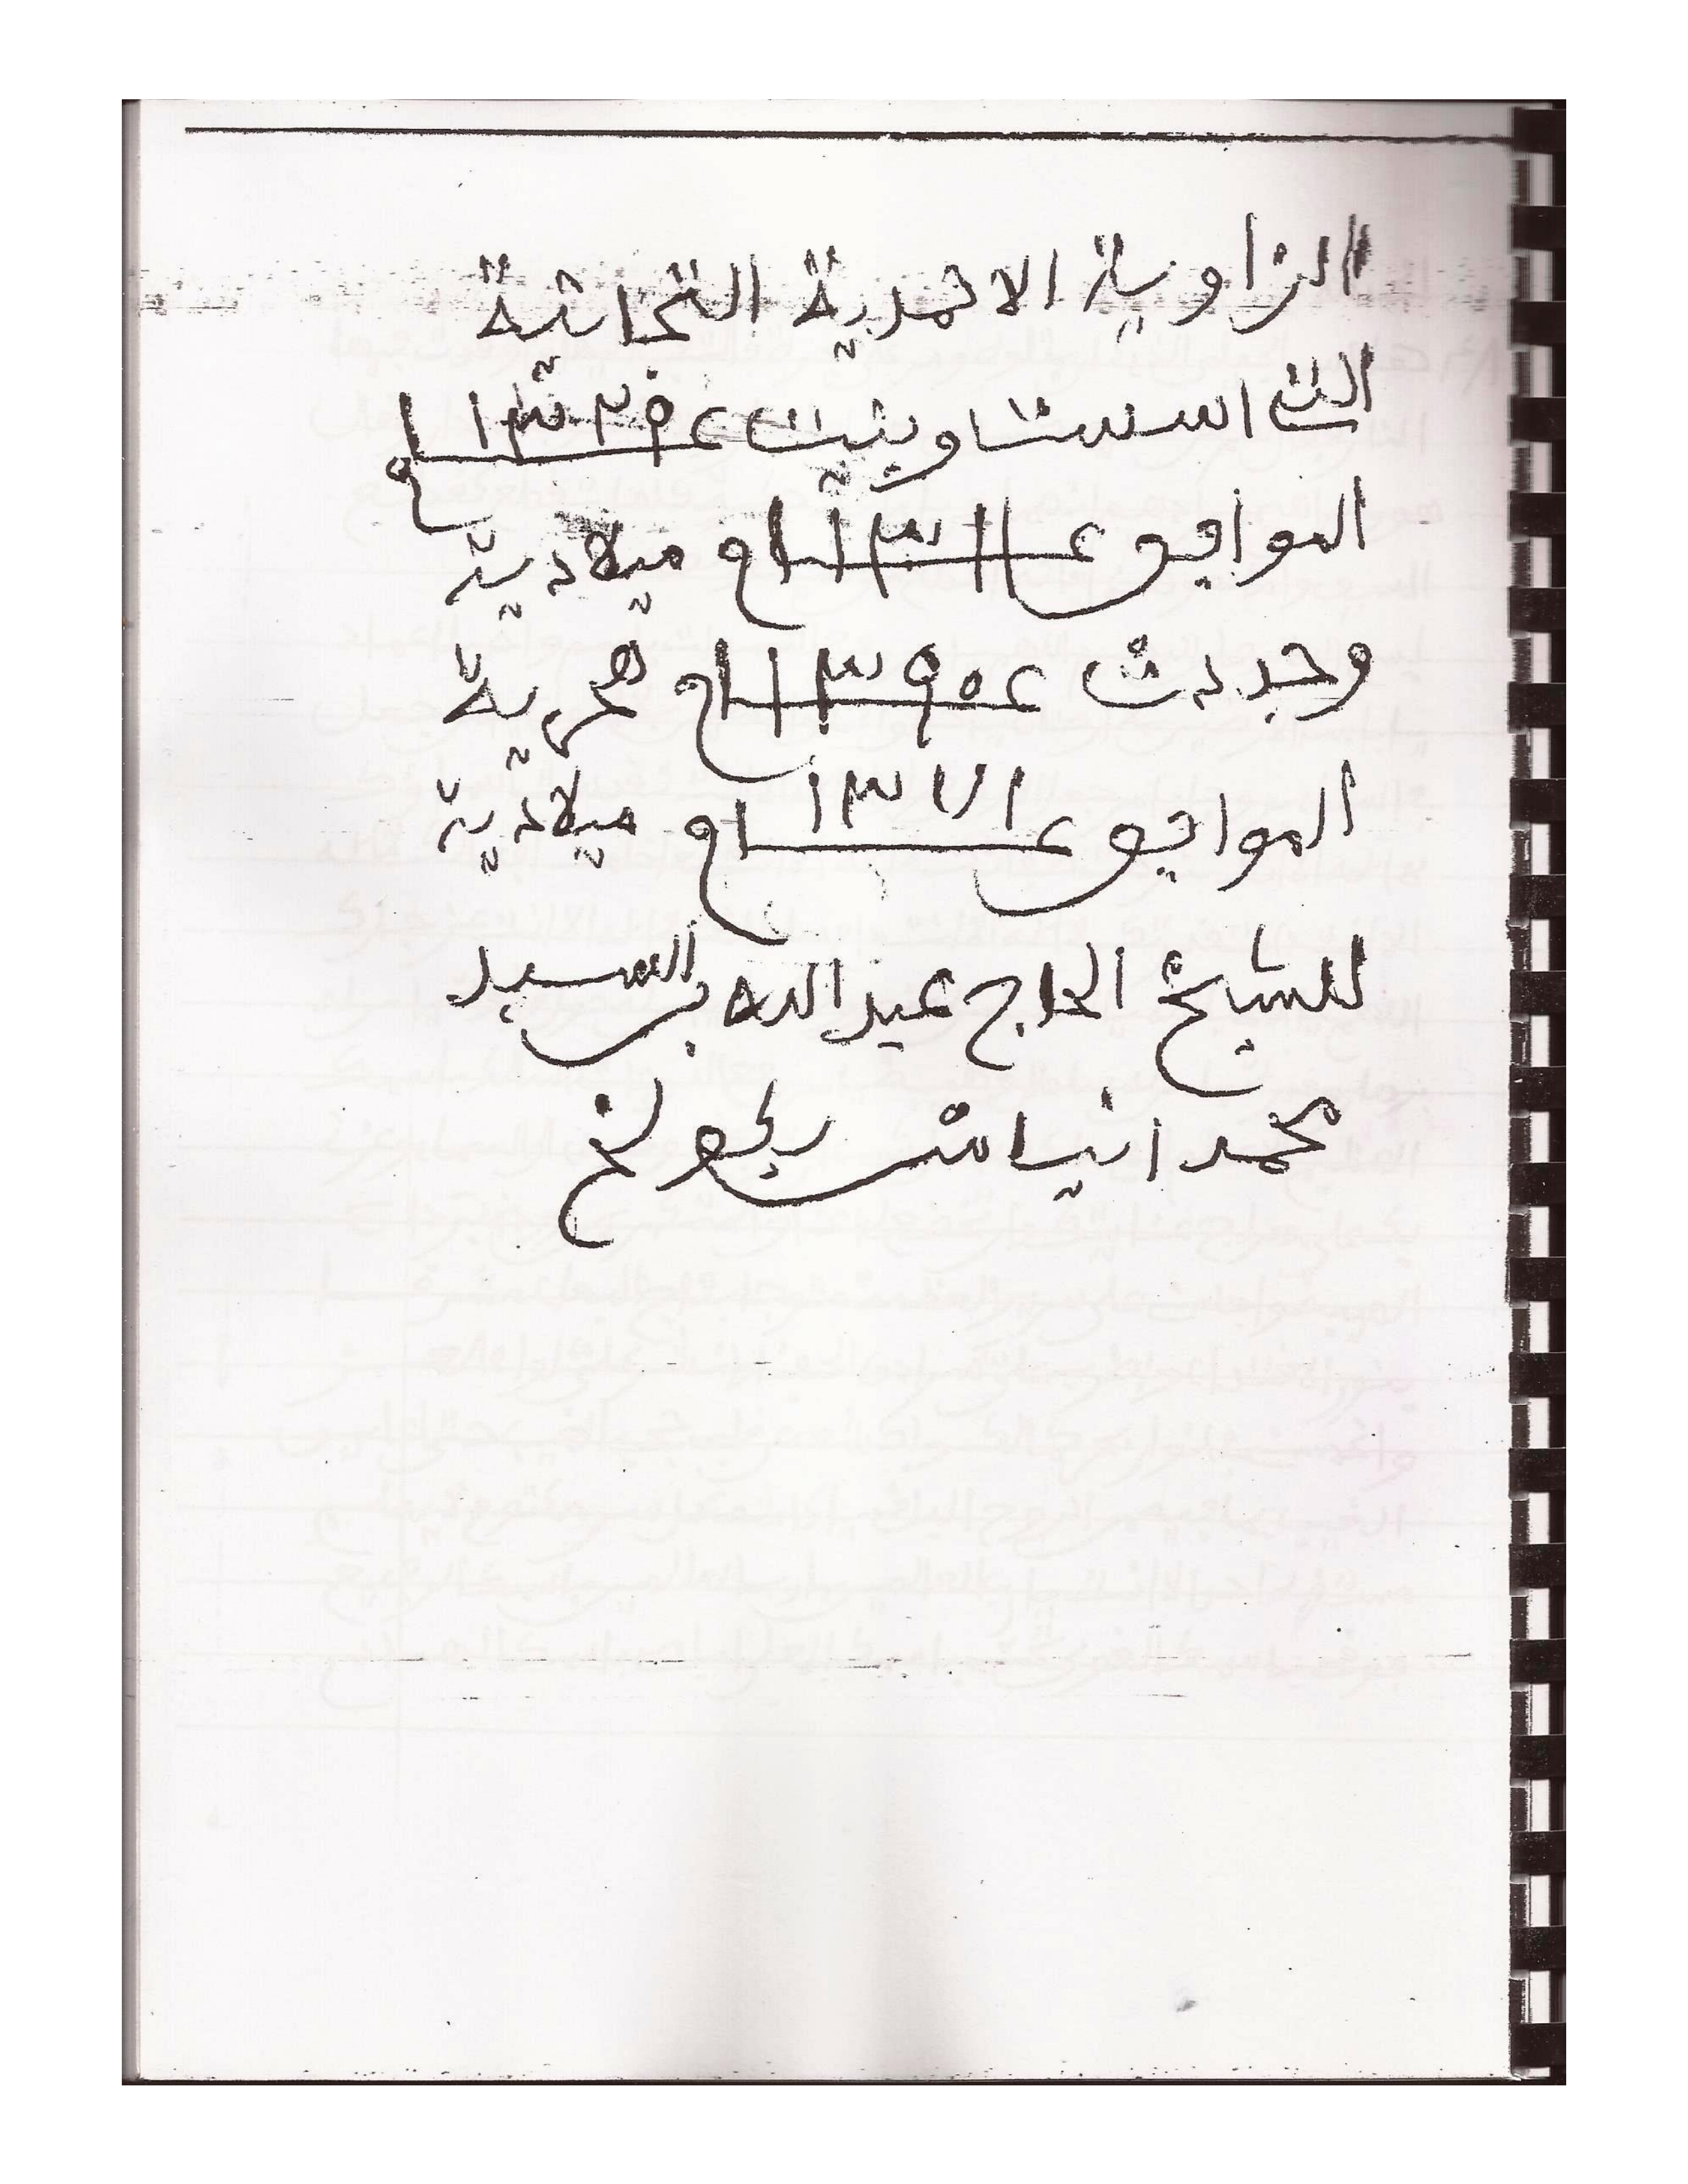 الزاوية الاحمدية التجانية
التى اسست وبنيت عام ١٣٢٥
الموافق عام ١٣١١ ميلادية
وجددت عام ١٣٩٥ هجرية
الموافق عام ١٣٧١ ميلادية
للشيخ الحاج عبد الله بن السيد
محمد انياس بكولخ